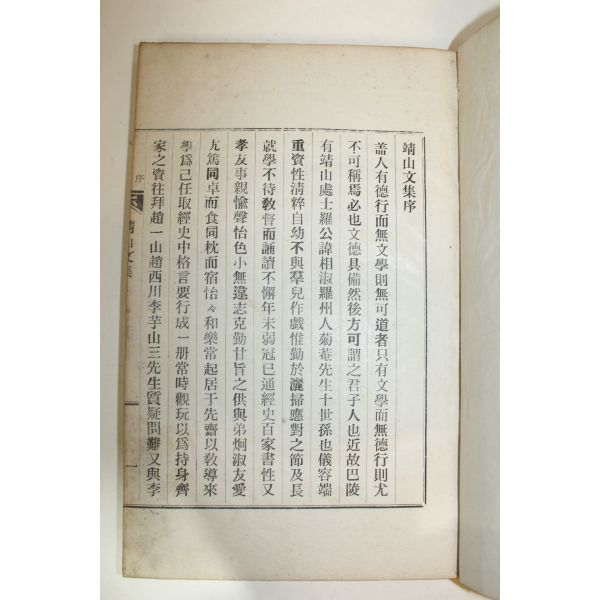 靖山文集序
盖人有德行而無文學則無可道者只有文學而無德行則尤
不可稱焉必也文德具備然後方可謂之君子人也近故巴陵
有靖山處士羅公諱相淑羅州人菊菴先生十世孫也儀容端
重資性淸粹自幼不與羣兒作戱惟勤於灑掃應對之節及長
就學不待敎督而誦讀不懈年未弱冠已通經史百家書性又
孝友事親愉聲怡色小無違志克勤甘旨之供與弟炯淑友愛
尤篤同卓而食同枕而宿怡々和樂常起居于先齋以敎導來
學爲己任取經史中格言要行成一册常時觀玩以爲持身齊
家之資往拜趙一山趙西川李芋山三先生質疑問難又與李
靖山文集
序
一